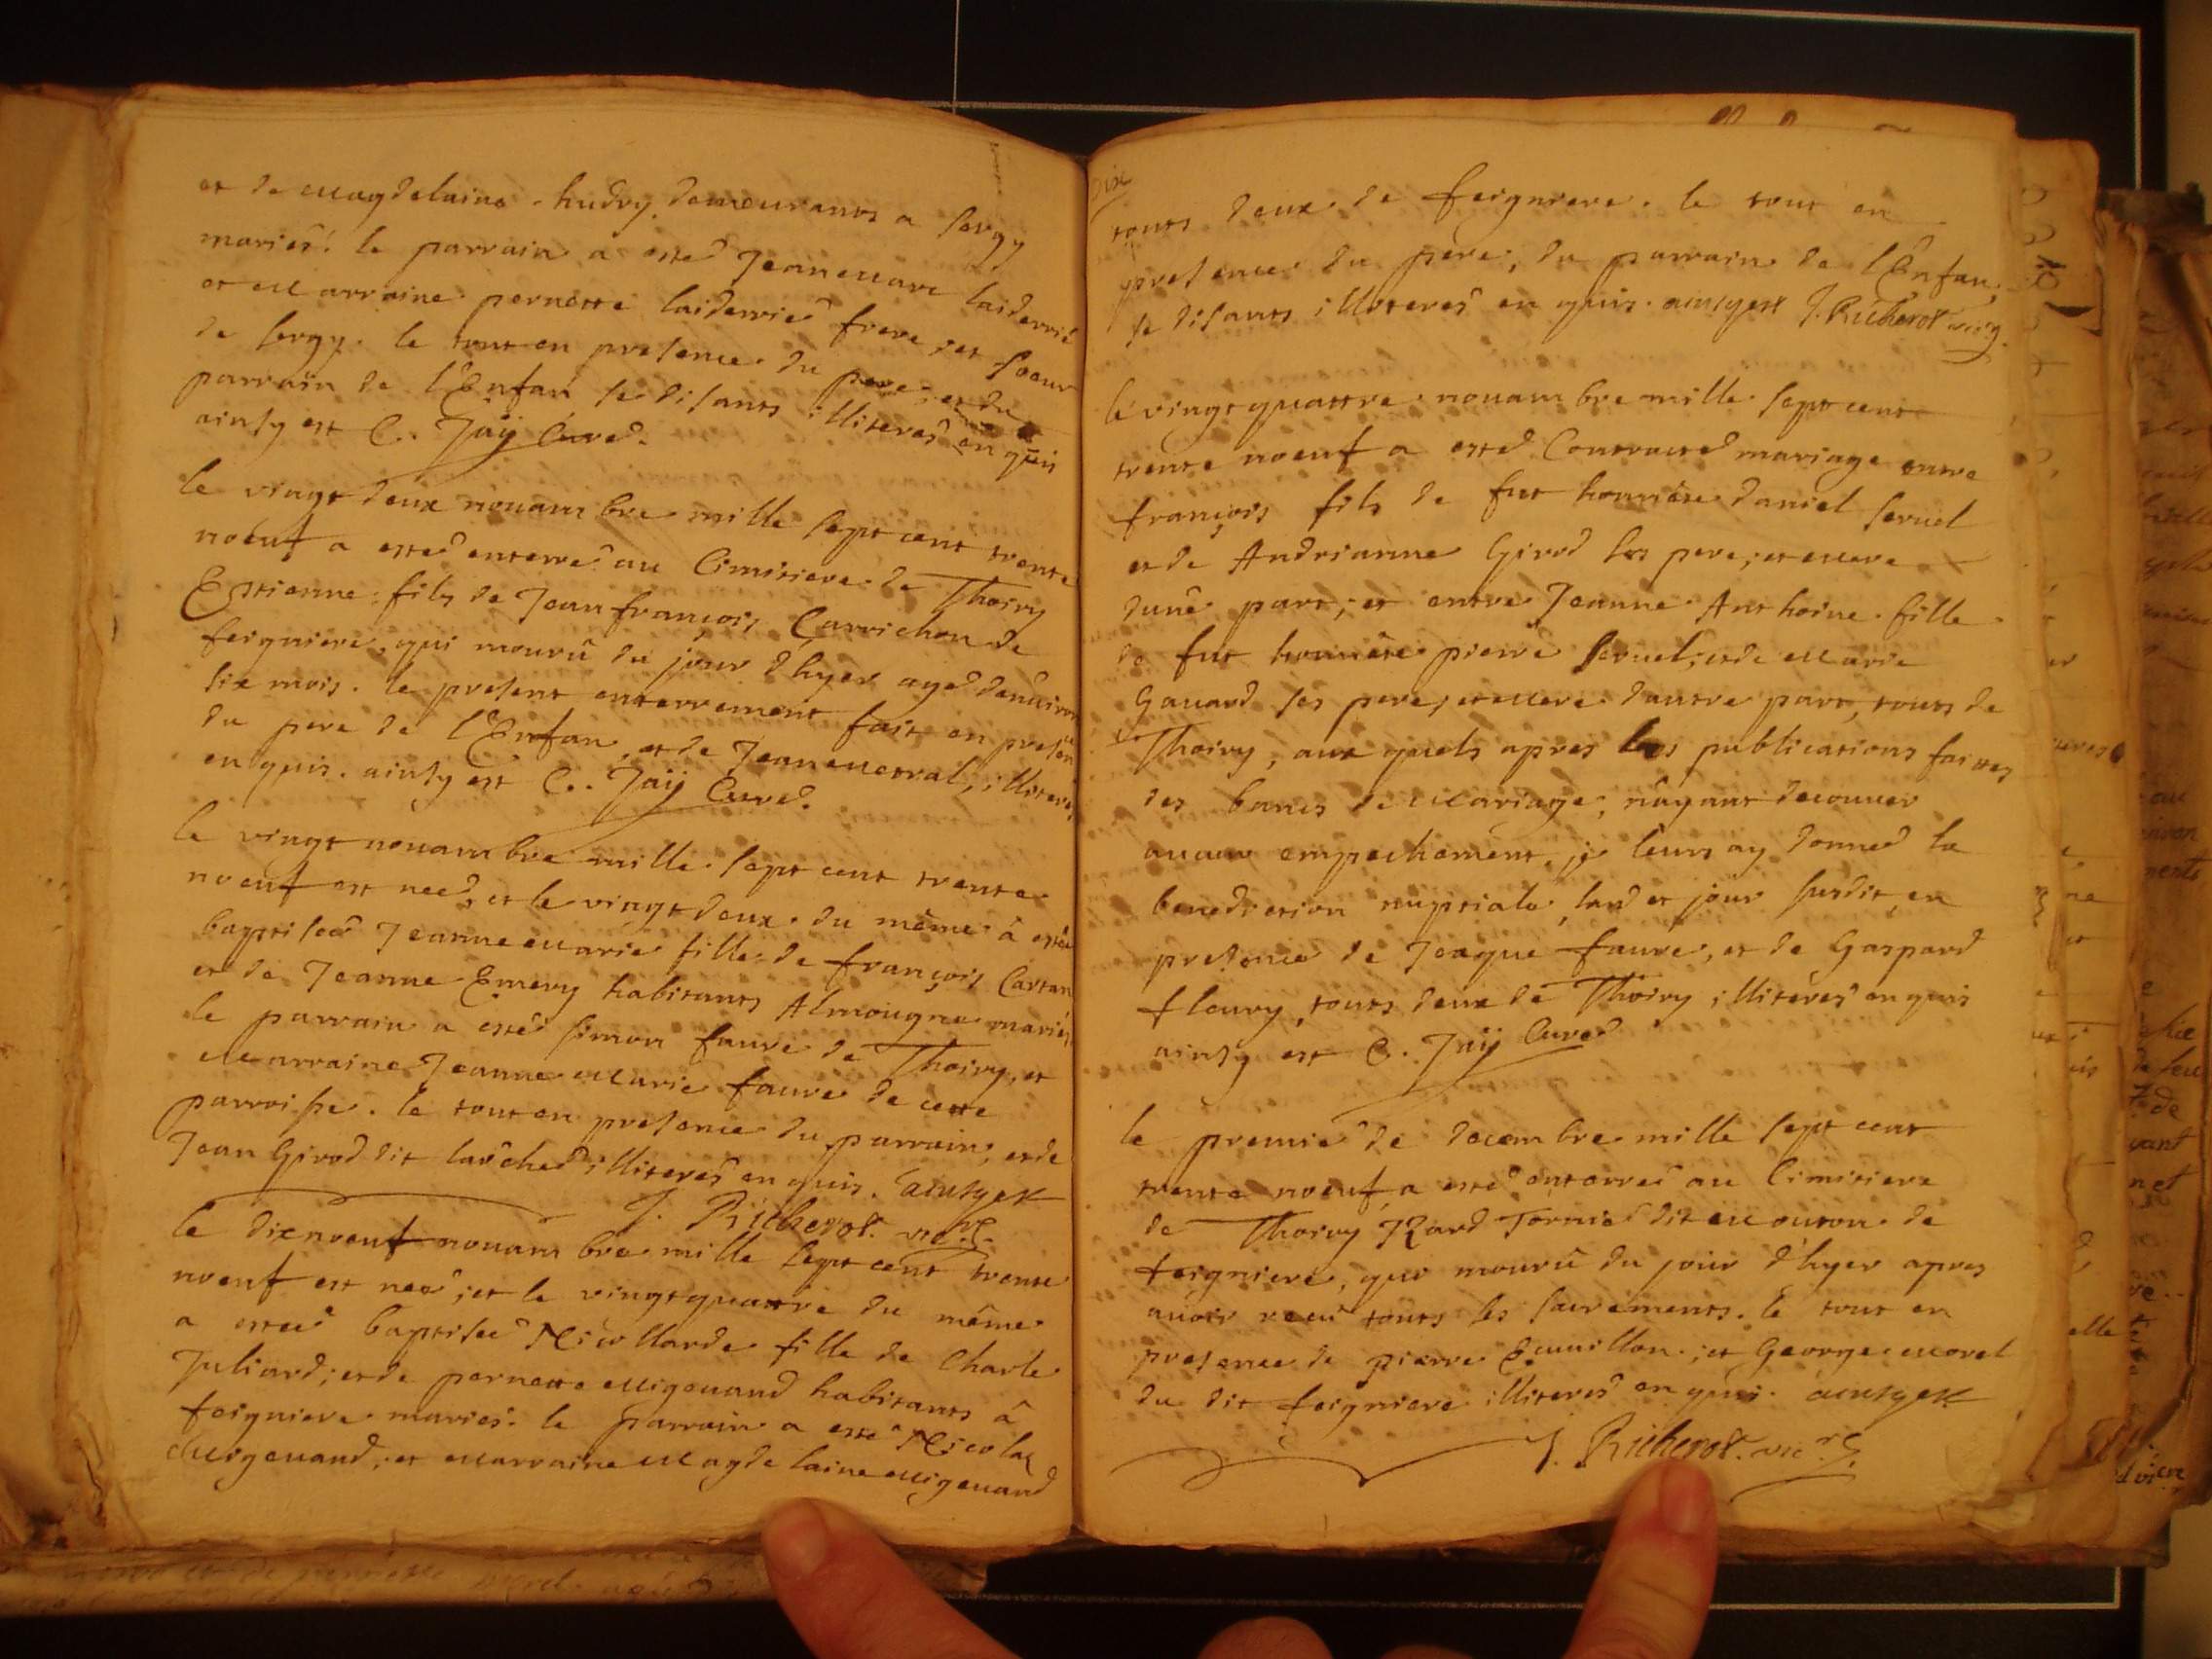 et de Magdelaine hudry demeurants a sergy
mariés. le parrain a esté Jean Marc laiderrié
et Marraine pernette laiderrié frere, et soeur
de sergy. le tout en presence du pere, et du
parrain de l'Enfan se disants illiteres en quis
ainsy est C. Jaÿ Curé.
le vingt deux nouambre mille sept cent trente
noeuf a esté enterré au Cimitiere de Thoiry
Estienne fils de Jean françois Carrichon de
feigniere, qui mourû du jour d'hyer agé denuiron
six mois. le present enterrement fait en presen
du pere de l'Enfan, et de Jean Mestral, illiteres
en quis. ainsy est C. Jaÿ Curé.
le vingt nouambre mille sept cent trente
noeuf est neé, et le vingt deux du même â estée
baptiseé Jeanne Marie fille de françois Cartan
et de Jeanne Emery habitants Almougne mariés
le parrain a esté simon faure de Thoiry, et
Marraine Jeanne Marie faure de cette
parroisse. le tout en presence du parrain, et de
Jean Girod dit larché illiteres en quis. ainsy est
J. Richerot. vic.re
le dixnoeuf nouambre mille sept cent trente
noeuf est neé, et le vingt quattre du même
a esteé baptiseé Nicollarde fille de Charle
Juliard, et de pernette Migouand habitants â
feigniere mariés. le parrain a esté Nicolas
Migouand, et Marraine Magdelaine Migouand
Dix
touts deux de feigniere. le tout en
presence du pere, du parrain de l'Enfan,
se disants illiteres en quis. ainsy est J. Richerot vic.re
le vingt quattre nouambre mille sept cent
trente noeuf a esté Contracté mariage entre
françois fils de fut honnéte Daniel seruel
et de Andrianne Girod ses pere, et Mere
d'une part, et entre Jeanne Anthoine fille
de fut honnéte pierre seruel, et de Marie
Gauard ses pere, et Mere d'autre part, touts de
Thoiry, aux quels apres les publications faittes
des bancs de Mariage, n'ayant decouuer
aucun empechement, je leurs ay donné la
benediction nuptiale, l'and et jour susdit, en
presence de Jeaque faure, et de Gaspard
fleury, touts deux de Thoiry illiteres en quis
ainsy est C. Jaÿ Curé
le premié de decembre mille sept cent
trente noeuf a esté enterré au Cimitiere
de Thoiry Jzard Tornié dit Mouton de
feigniere, qui mourû du jour d'hyer apres
auoir receu touts les sacrements. le tout en
presence de pierre Emuillon, et George Morel
du dit feigniere illiteres en quis. ainsy est
J. Richerot. vic.re